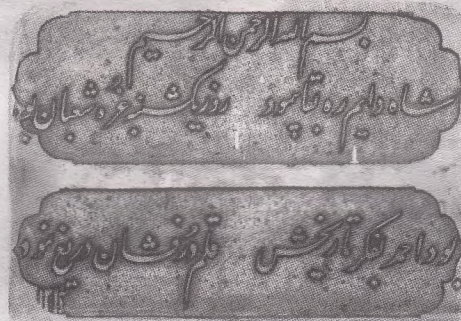 بسم الله الرحمن الرحیم
شاه دایم ره بقا پیمود روز یکشنبه غره شعبان بود
بود احمد بفکر تاریخش قلم درفشان دریغ نمود